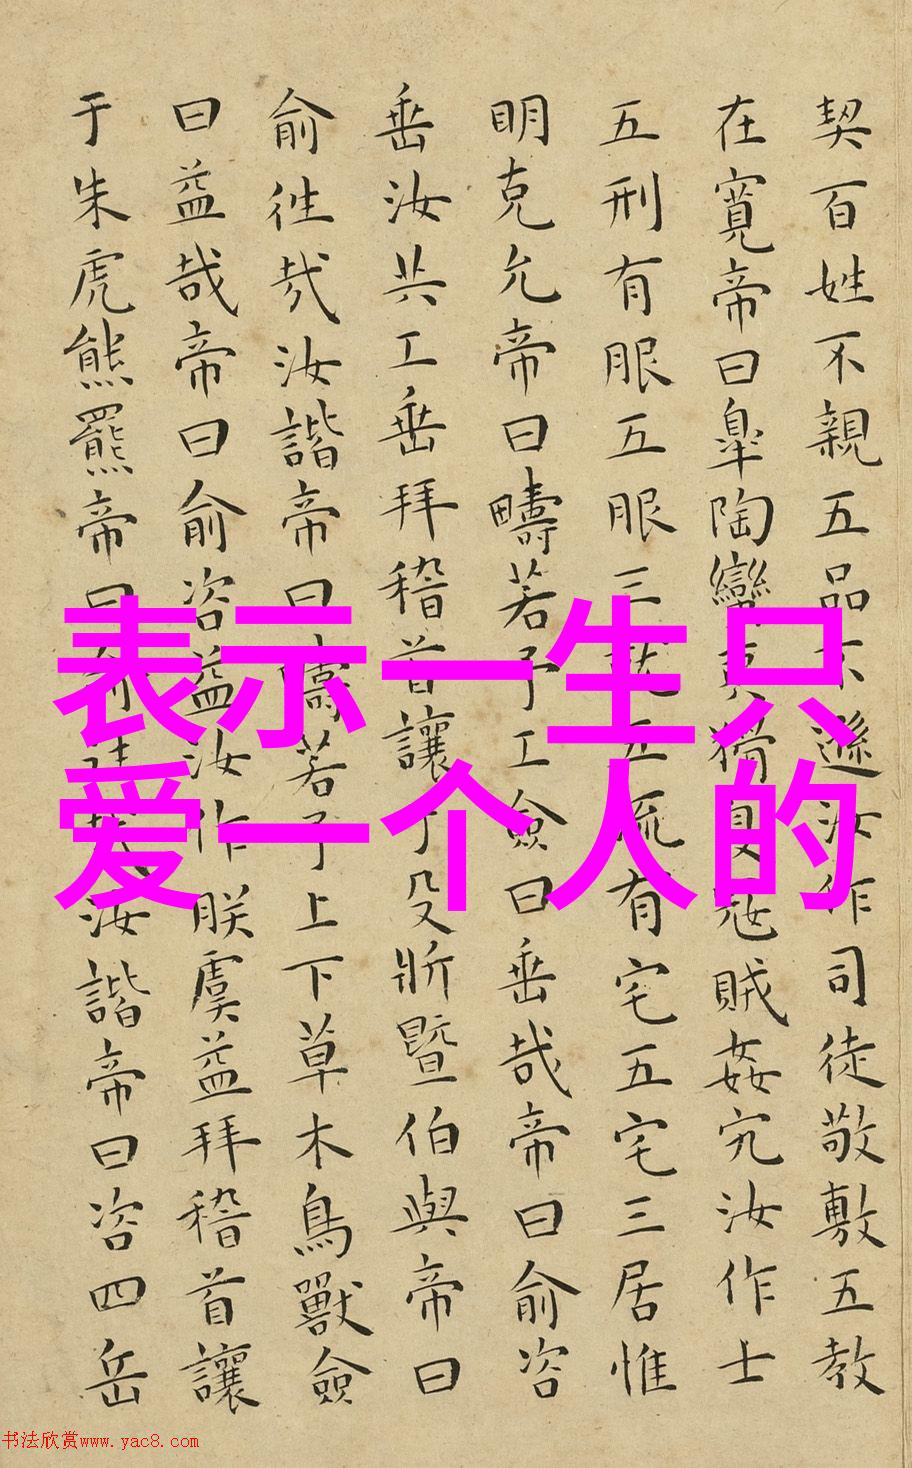 契百姓不親五品不遜汝作司徒敬敷五教
在寬帝曰皐陶蠻夷猾夏寇賊姦宄汝作士
五刑有服五服三就五流有宅五宅三居惟
明克允帝曰疇若予工僉曰垂哉帝曰俞咨
垂汝共工垂拜稽首讓于殳斨暨伯與帝曰
俞往哉汝諧帝曰疇若予上下草木鳥獸僉
曰益哉帝曰俞咨益汝作朕虞益拜稽首讓
于朱虎熊羆帝曰俞往哉汝諧帝曰咨四岳
表示一生只
爱一个人的
书法欣赏www.yac8.com